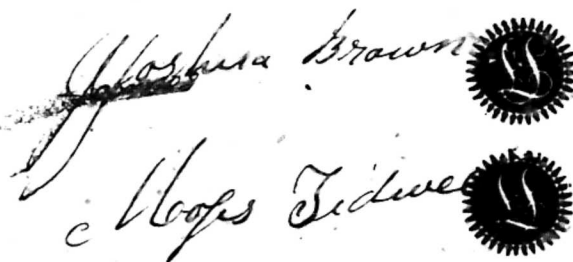 Joshua Brown
Moses Tidwell